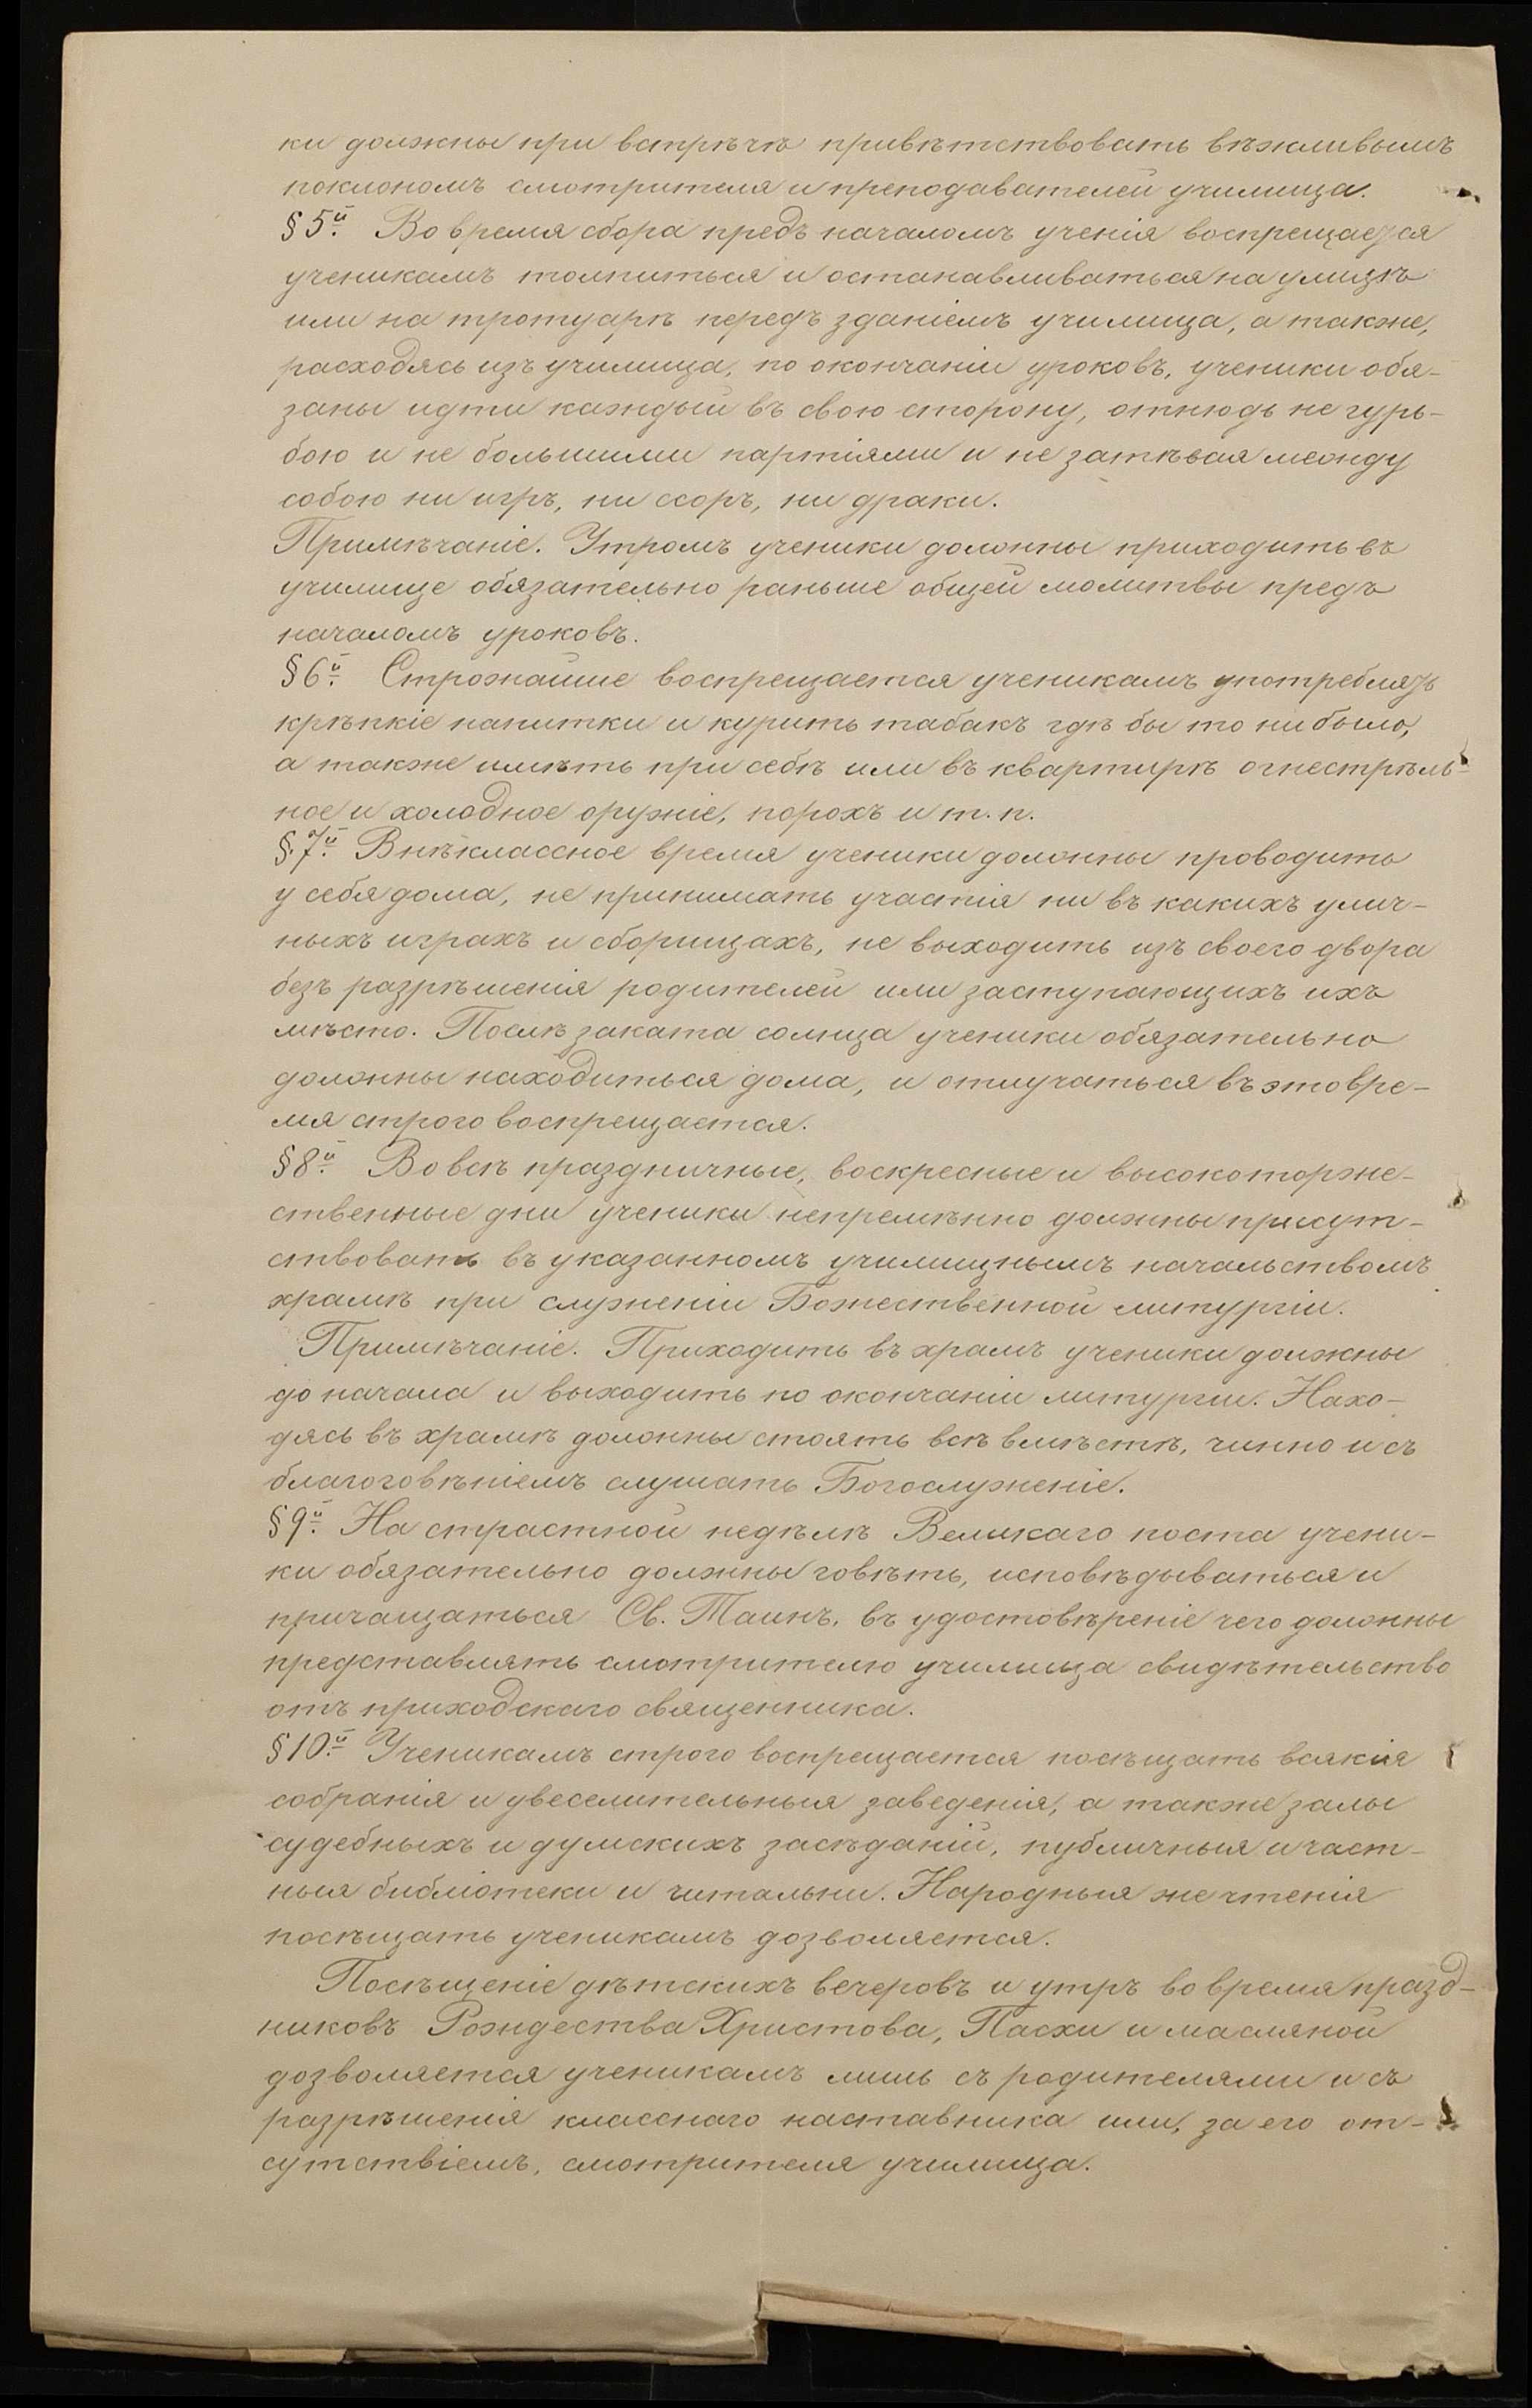 ки должны при встрѣчѣ привѣтствовать вѣжливымъ
поклономъ смотрителя и преподавателей училища.
§ 5й. Во время сбора предъ началомъ ученія воспрещается
ученикамъ толпиться и останавливаться на улицѣ
или на тротуарѣ передъ зданіемъ училища, а также,
расходясь изъ училища, по окончаніи уроковъ, ученики обя-
заны идти каждый въ свою сторону, отнюдь не гурь-
бою и не большими партіями и не затѣвая между
собою ни игръ, ни ссоръ, ни драки.
Примѣчаніе. Утромъ ученики должны приходить въ
училище обязательно раньше общей молитвы предъ
началомъ уроковъ.
§ 6й. Строжайше воспрещается ученикамъ употреблять
крѣпкіе напитки и курить табакъ гдѣ бы то ни было,
а также имѣть при себѣ или въ квартирѣ огнестрѣль-
ное и холодное оружіе, порохъ и т. п.
§. 7й. Внѣклассное время ученики должны проводить
у себя дома, не принимать участія ни въ какихъ улич-
ныхъ играхъ и сборищахъ, не выходить изъ своего двора
безъ разрѣшенія родителей или заступающихъ ихъ
мѣсто. Послѣ заката солнца ученики обязательно
должны находиться дома, и отлучаться въ это вре-
мя строго воспрещается.
§ 8й. Во всѣ праздничные, воскресные и высокоторже-
ственные дни ученики непремѣнно должны присут-
ствовать въ указанномъ училищнымъ начальствомъ
храмѣ при служеніи Божественной литургіи.
Примѣчаніе. Приходить въ храмъ ученики должны
до начала и выходить по окончаніи литургии. Нахо-
дясь въ храмѣ должны стоять всѣ вмѣстѣ, чинно и съ
благоговѣніемъ слушать Богослуженіе.
§ 9й. На страстной недѣлѣ Великаго поста учени-
ки обязательно должны говѣть, исповѣдываться и
причащаться Св. Таинъ, въ удостовѣреніе чего должны
представлять смотрителю училища свидѣтельство
отъ приходскаго священника.
§ 10й. Ученикамъ строго воспрещается посѣщать всякія
собранія и увеселительныя заведенія, а также залы
судебныхъ и думскихъ засѣданій, публичныя и част-
ныя библіотеки и читальни. Народныя же чтенія
посѣщать ученикамъ дозволяется.
Посѣщеніе дѣтскихъ вечеровъ и утръ во время празд-
никовъ Рождества Христова, Пасхи и масляной
дозволяется ученикамъ лишь съ родителями и съ
разрѣшенія класснаго наставника или, за его от-
сутствіемъ, смотрителя училища.